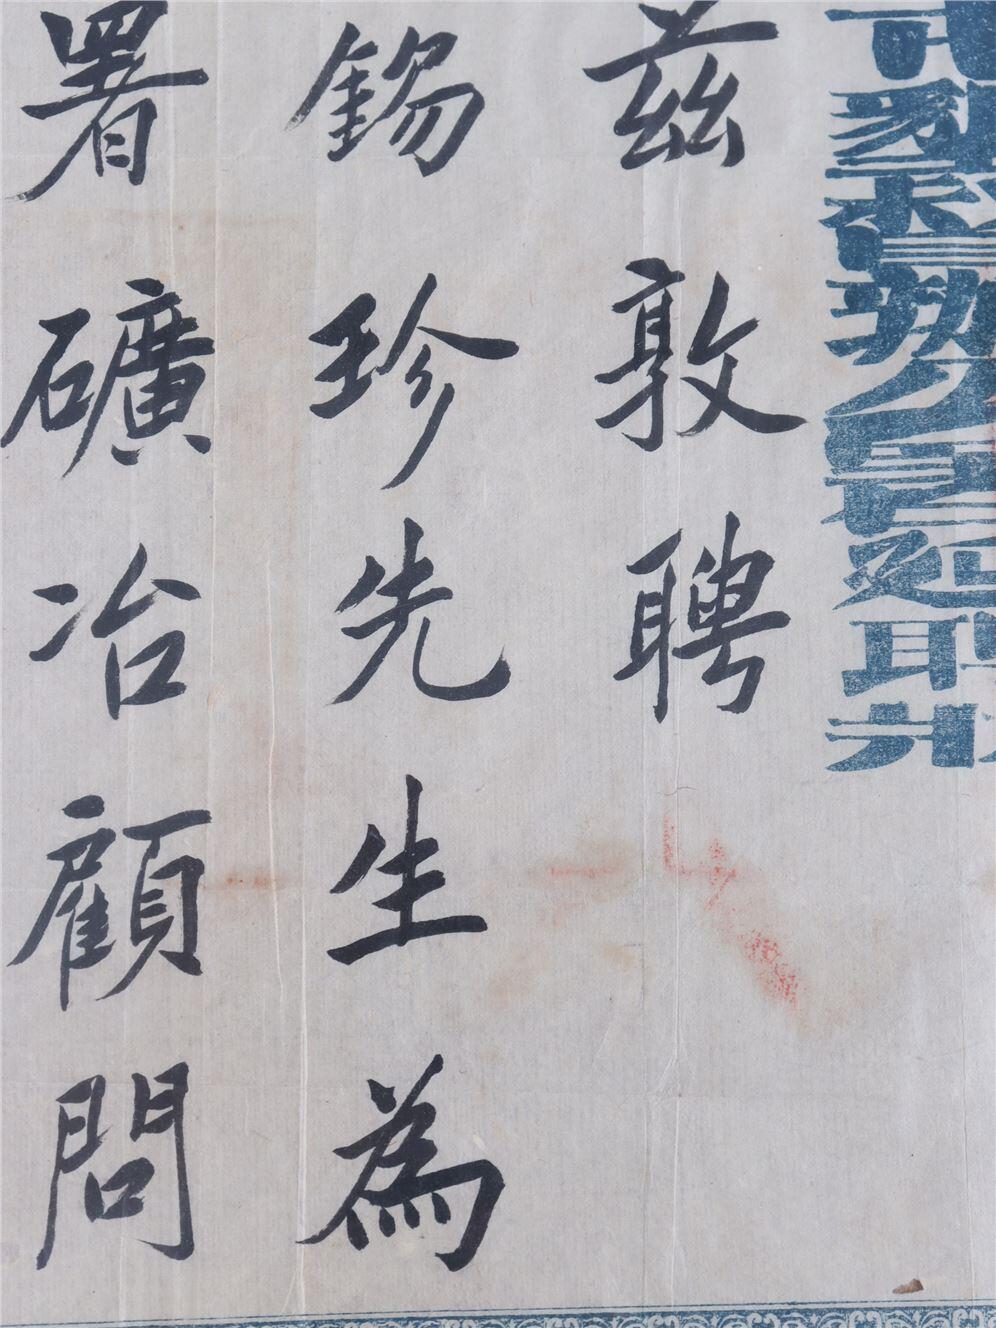 茲敦聘
錫珍先生為
署礦冶顧問